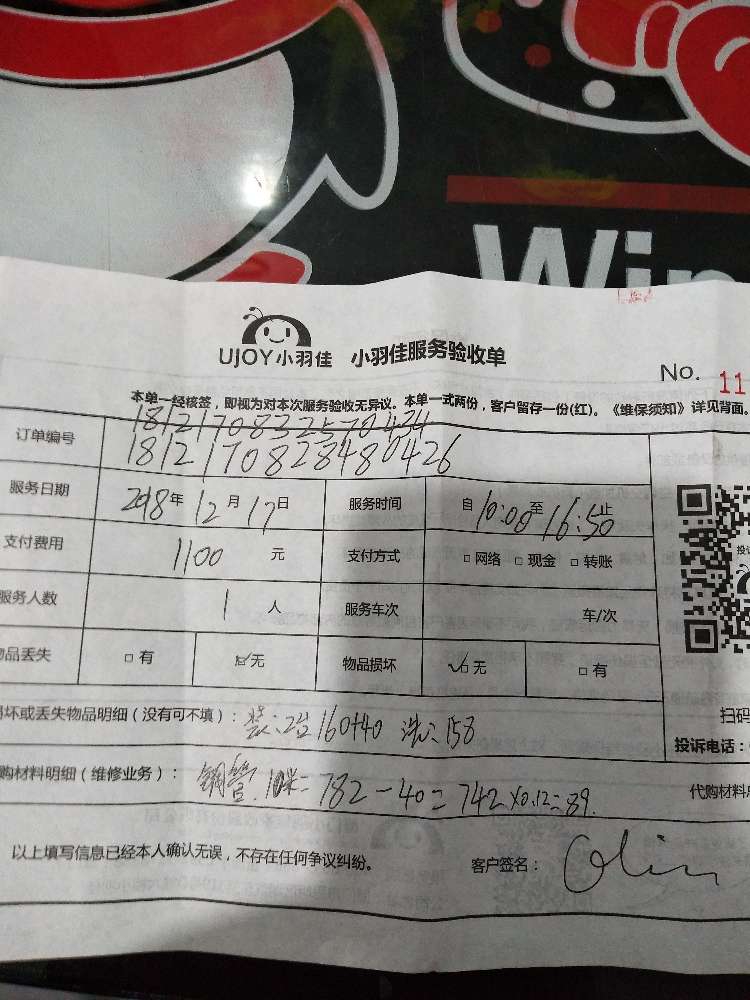 Win
UJOY小羽佳 小羽佳服务验收单
No. 11
本单一经核签，即视为对本次服务验收无异议。本单一式两份，客户留存一份(红)。《维保须知》详见背面。
1812170832570434
订单编号 1812170828480426
服务日期 2018年 12月 17日 服务时间 自 10:00 至 16:50 止
支付费用 1100 元 支付方式 □ 网络 □ 现金 □ 转账
服务人数 1 人 服务车次 车/次
物品丢失 □ 有 ☑ 无 物品损坏 ☑ 无 □ 有
损坏或丢失物品明细（没有可不填）：装:2台 160+40 洗: 158
扫码
投诉电话：
购材料明细（维修业务）：铜管.10米=782-40=742×0.12=89.
代购材料
以上填写信息已经本人确认无误，不存在任何争议纠纷。 客户签名：